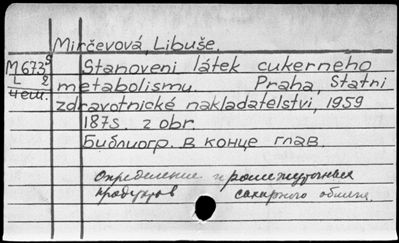 Mirčevová, Libuše.
M673 S Stanoveni látek cukerneho
L 2 metabolismu. Praha, Statni
4 eш. zdravotnické nakladatelstvi, 1959
187S. 2 obr.
Библиогр. в конце глав.
Определение промежуточных
продуктов сахарного обмена.